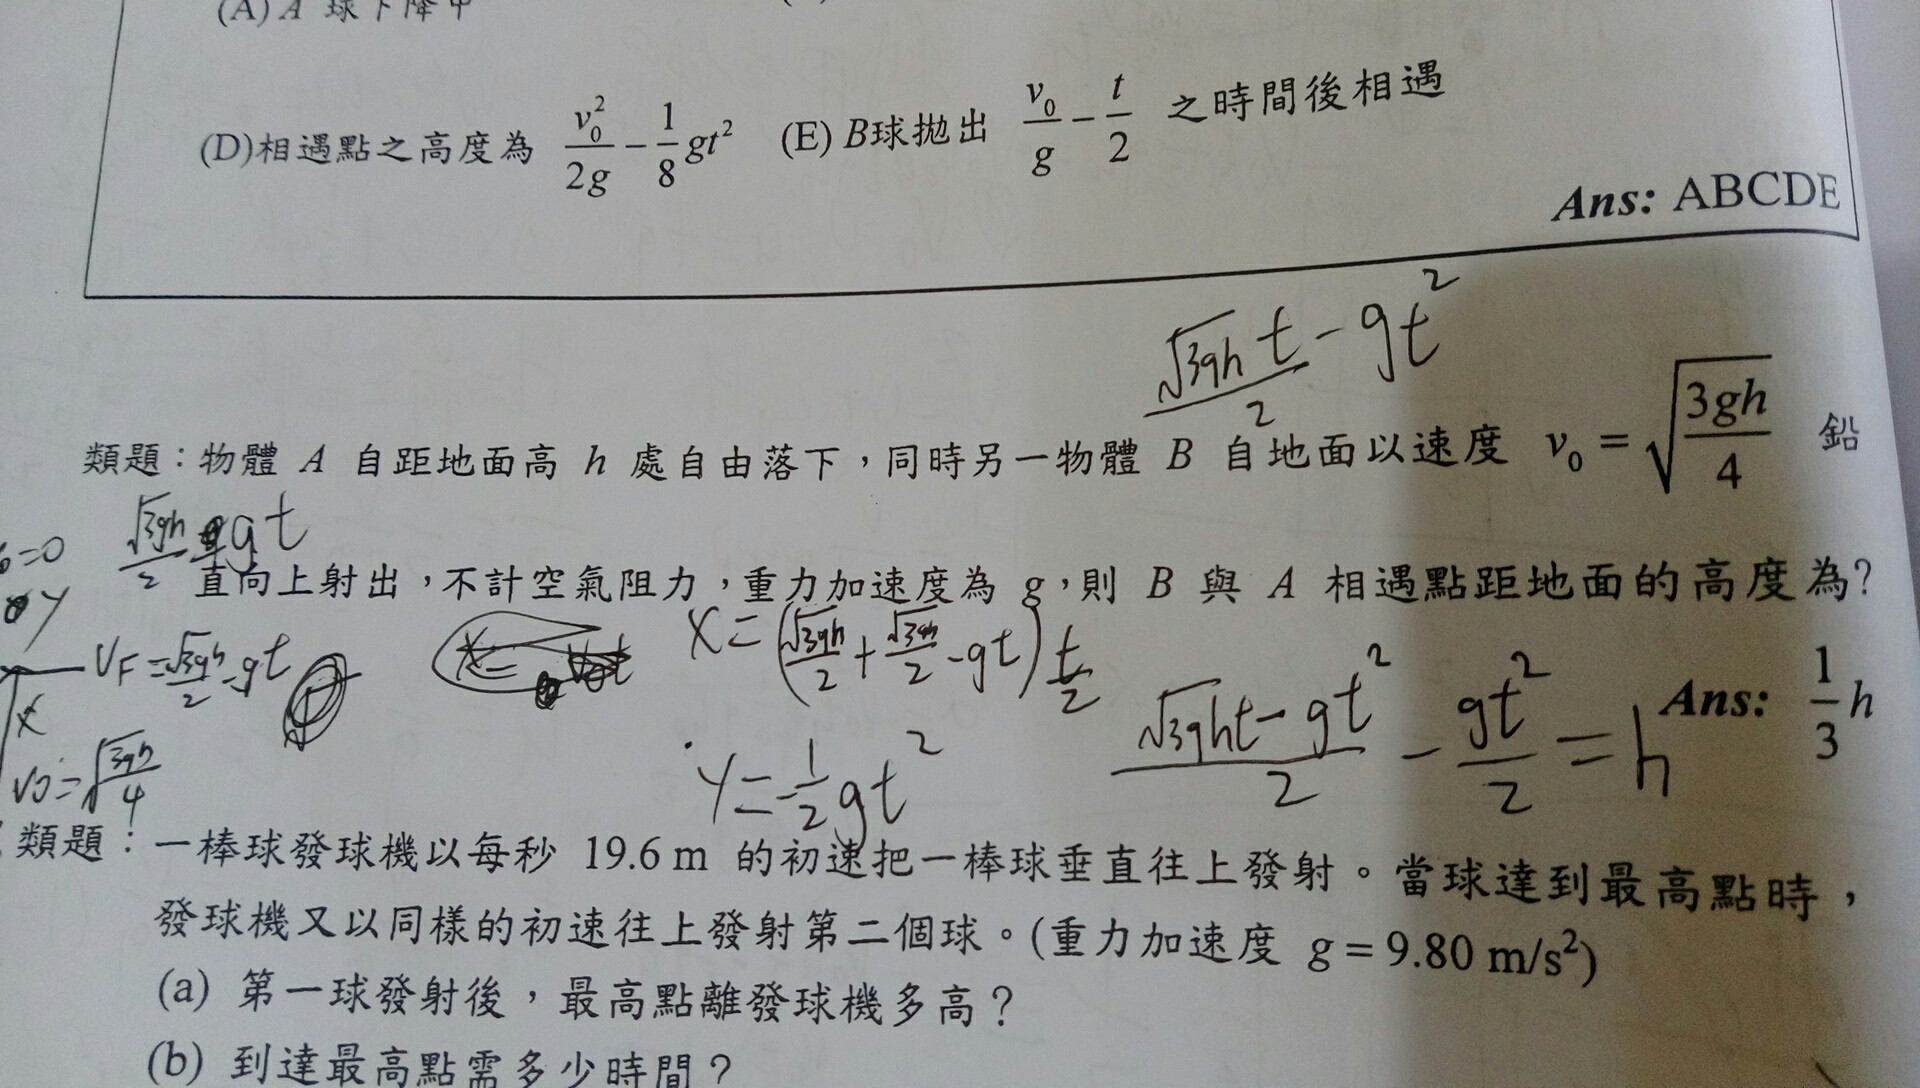 (A) A 球下降中
(D)相遇點之高度為 \frac{v_0^2}{2g} - \frac{1}{8}gt^2 (E) B球拋出 \frac{v_0}{g} - \frac{t}{2} 之時間後相遇
Ans: ABCDE
\frac{\sqrt{3gh}t}{2} - gt^2
類題：物體 A 自距地面高 h 處自由落下，同時另一物體 B 自地面以速度 v_0 = \sqrt{\frac{3gh}{4}} 鉛
\frac{\sqrt{3gh}}{2} - gt
=0
直向上射出，不計空氣阻力，重力加速度為 g，則 B 與 A 相遇點距地面的高度為？
y
V_F = \frac{\sqrt{3gh}}{2} - gt
X = (\frac{\sqrt{3gh}}{2} + \frac{\sqrt{3gh}}{2} - gt) \frac{t}{2}
x
\frac{\sqrt{3gh}t - gt^2}{2} - \frac{gt^2}{2} = h
Ans: \frac{1}{3}h
Y = -\frac{1}{2}gt^2
V_0 = \sqrt{\frac{3gh}{4}}
類題：一棒球發球機以每秒 19.6 m 的初速把一棒球垂直往上發射。當球達到最高點時，
發球機又以同樣的初速往上發射第二個球。(重力加速度 g = 9.80 m/s²)
(a) 第一球發射後，最高點離發球機多高？
(b) 到達最高點需多少時間？